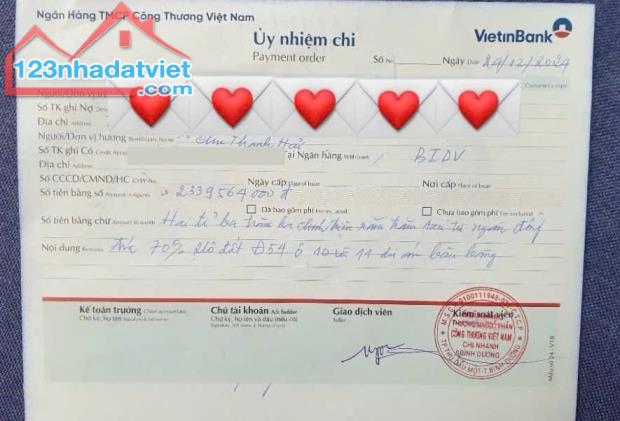 Ngân Hàng TMCP Công Thương Việt Nam
Ủy nhiệm chi
Payment order
VietinBank
Số No
Ngày Date 24/12/2024
123nhadatviet.com
Số TK ghi Nợ
Địa chỉ Address
Người/Đơn vị hưởng Beneficiary Name Thanh Hải
Số TK ghi Có
Tại Ngân hàng With bank BIDV
Địa chỉ Address
Số CCCD/CMND/HC
Ngày cấp Date of Issue
Nơi cấp Place of Issue
Số tiền bằng số Amount in figures 2339564000 đ
Đã bao gồm phí Fee included
Chưa bao gồm phí Fee excluded
Số tiền bằng chữ Amount in words Hai tỉ ba trăm ba chín triệu năm trăm sáu tư ngàn đồng
Nội dung Remarks 70% lô đất Đ54 ô 10 và 11 dự án
Kế toán trưởng Chief accountant
Chữ ký, họ tên Signature & full name
Chủ tài khoản A/c holder
Chữ ký, họ tên và dấu (nếu có)
Signature, full name & stamp
Giao dịch viên
Teller
Kiểm soát viên
CÔNG THƯƠNG VIỆT NAM
CHI NHÁNH
BÌNH DƯƠNG